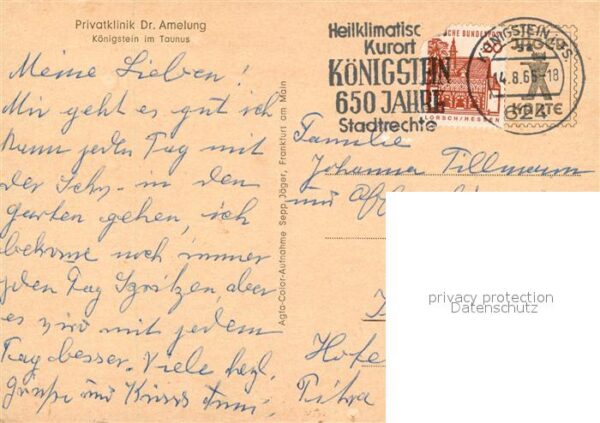 Privatklinik Dr. Amelung
Königstein im Taunus
Meine Lieben!
Mir geht es gut ich
kann jeden Tag mit
der Schw. in den
Garten gehen, ich
bekomme noch immer
jeden Tag Spritzen, aber
es wird mit jedem
Tag besser. Viele herzl.
Grüße und Küsse
Agfa-Color-Aufnahme Sepp Jäger, Frankfurt am Main
Heilklimatisc
Kurort
KÖNIGSTEIN
650 JAHRE
Stadtrechte
LORSCH/HESSEN
KÖNIGSTEIN
14.8.65-18
624
KARTE
Familie
Johanna Tillmann
und
privacy protection
Datenschutz